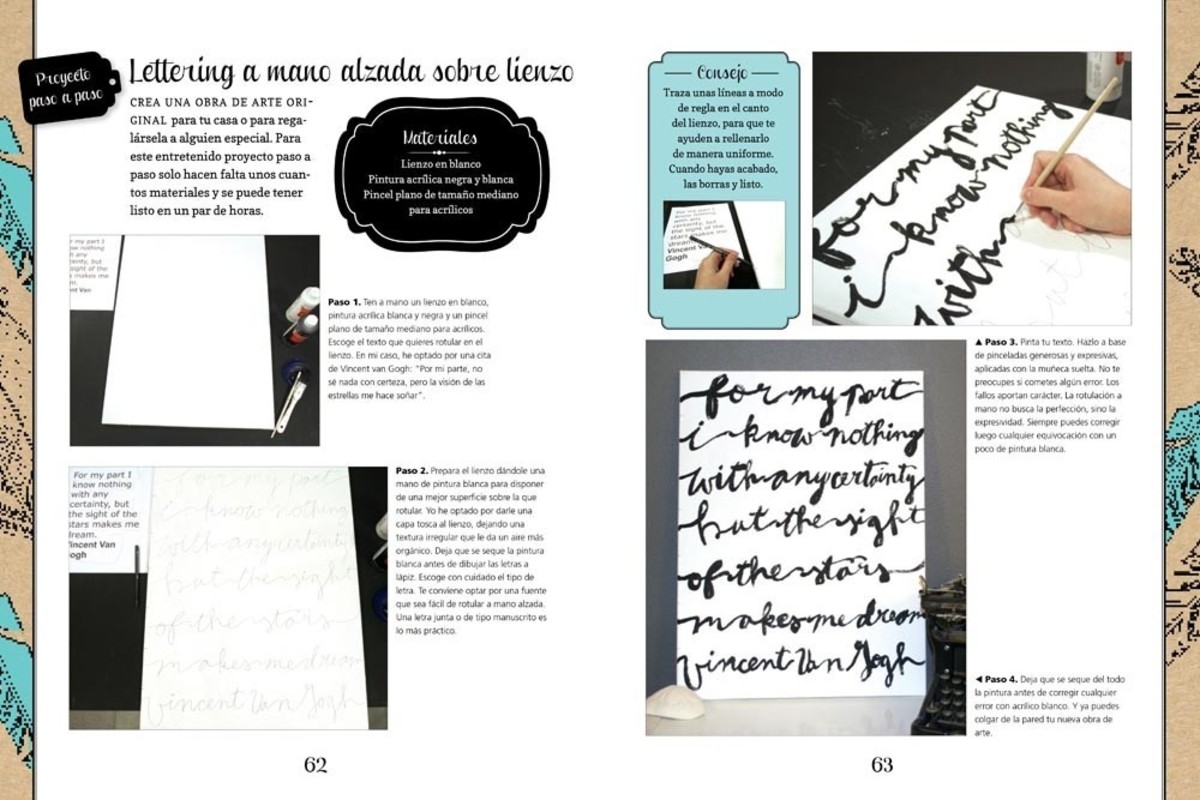 Proyecto
paso a paso
Lettering a mano alzada sobre lienzo
CREA UNA OBRA DE ARTE ORI-
GINAL para tu casa o para rega-
lársela a alguien especial. Para
este entretenido proyecto paso a
paso solo hacen falta unos cuan-
tos materiales y se puede tener
listo en un par de horas.
Materiales
Lienzo en blanco
Pintura acrílica negra y blanca
Pincel plano de tamaño mediano
para acrílicos
r my part I
w nothing
h any
tainty, but
sight of the
s makes me
m.
nt Van
Paso 1. Ten a mano un lienzo en blanco,
pintura acrílica blanca y negra y un pincel
plano de tamaño mediano para acrílicos.
Escoge el texto que quieres rotular en el
lienzo. En mi caso, he optado por una cita
de Vincent van Gogh: "Por mi parte, no
sé nada con certeza, pero la visión de las
estrellas me hace soñar".
For my part I
know nothing
with any
certainty, but
the sight of the
stars makes me
dream.
Vincent Van
ogh
for my part
i know nothing
with any certainty
but the sight
of the stars
makes me dream
Vincent Van Gogh
Paso 2. Prepara el lienzo dándole una
mano de pintura blanca para disponer
de una mejor superficie sobre la que
rotular. Yo he optado por darle una
capa tosca al lienzo, dejando una
textura irregular que le da un aire más
orgánico. Deja que se seque la pintura
blanca antes de dibujar las letras a
lápiz. Escoge con cuidado el tipo de
letra. Te conviene optar por una fuente
que sea fácil de rotular a mano alzada.
Una letra junta o de tipo manuscrito es
lo más práctico.
62
Consejo
Traza unas líneas a modo
de regla en el canto
del lienzo, para que te
ayuden a rellenarlo
de manera uniforme.
Cuando hayas acabado,
las borras y listo.
For my part I
know nothing
with any
certainty, but
the sight of the
stars makes me
dream
Vincent Van
Gogh
for my part
i know nothing
with
▲ Paso 3. Pinta tu texto. Hazlo a base
de pinceladas generosas y expresivas,
aplicadas con la muñeca suelta. No te
preocupes si cometes algún error. Los
fallos aportan carácter. La rotulación a
mano no busca la perfección, sino la
expresividad. Siempre puedes corregir
luego cualquier equivocación con un
poco de pintura blanca.
for my part
i know nothing
with any certainty
but the sight
of the stars
makes me dream
Vincent Van Gogh
◄ Paso 4. Deja que se seque del todo
la pintura antes de corregir cualquier
error con acrílico blanco. Y ya puedes
colgar de la pared tu nueva obra de
arte.
63